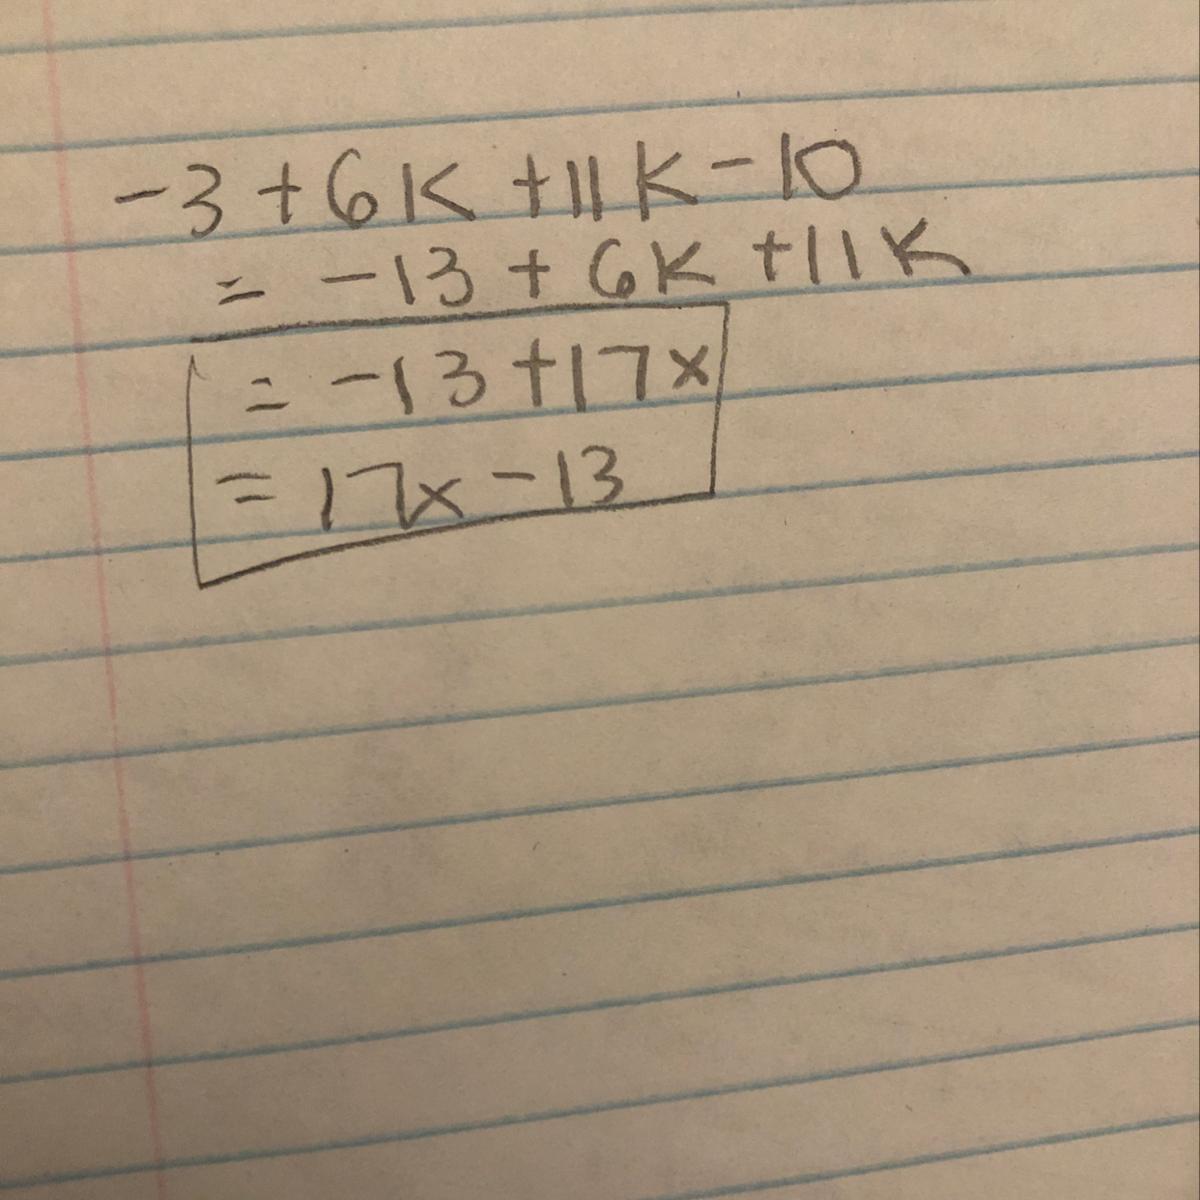 -3 + 6K + 11K - 10
= -13 + 6K + 11K
= -13 + 17x
= 17x - 13